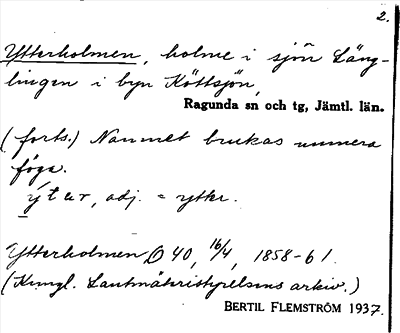 2.
Ytterholmen, holme i sjön Läng-
lingen i byn Köttsjön,
Ragunda sn och tg, Jämtl. län.
(forts.) Namnet brukas numera
föga.
ýtər, adj. = yttre.
Ytterholmen D 40, 16/4, 1858-61.
(Kungl. Lantmäteristyrelsens arkiv.)
BERTIL FLEMSTRÖM 1937.